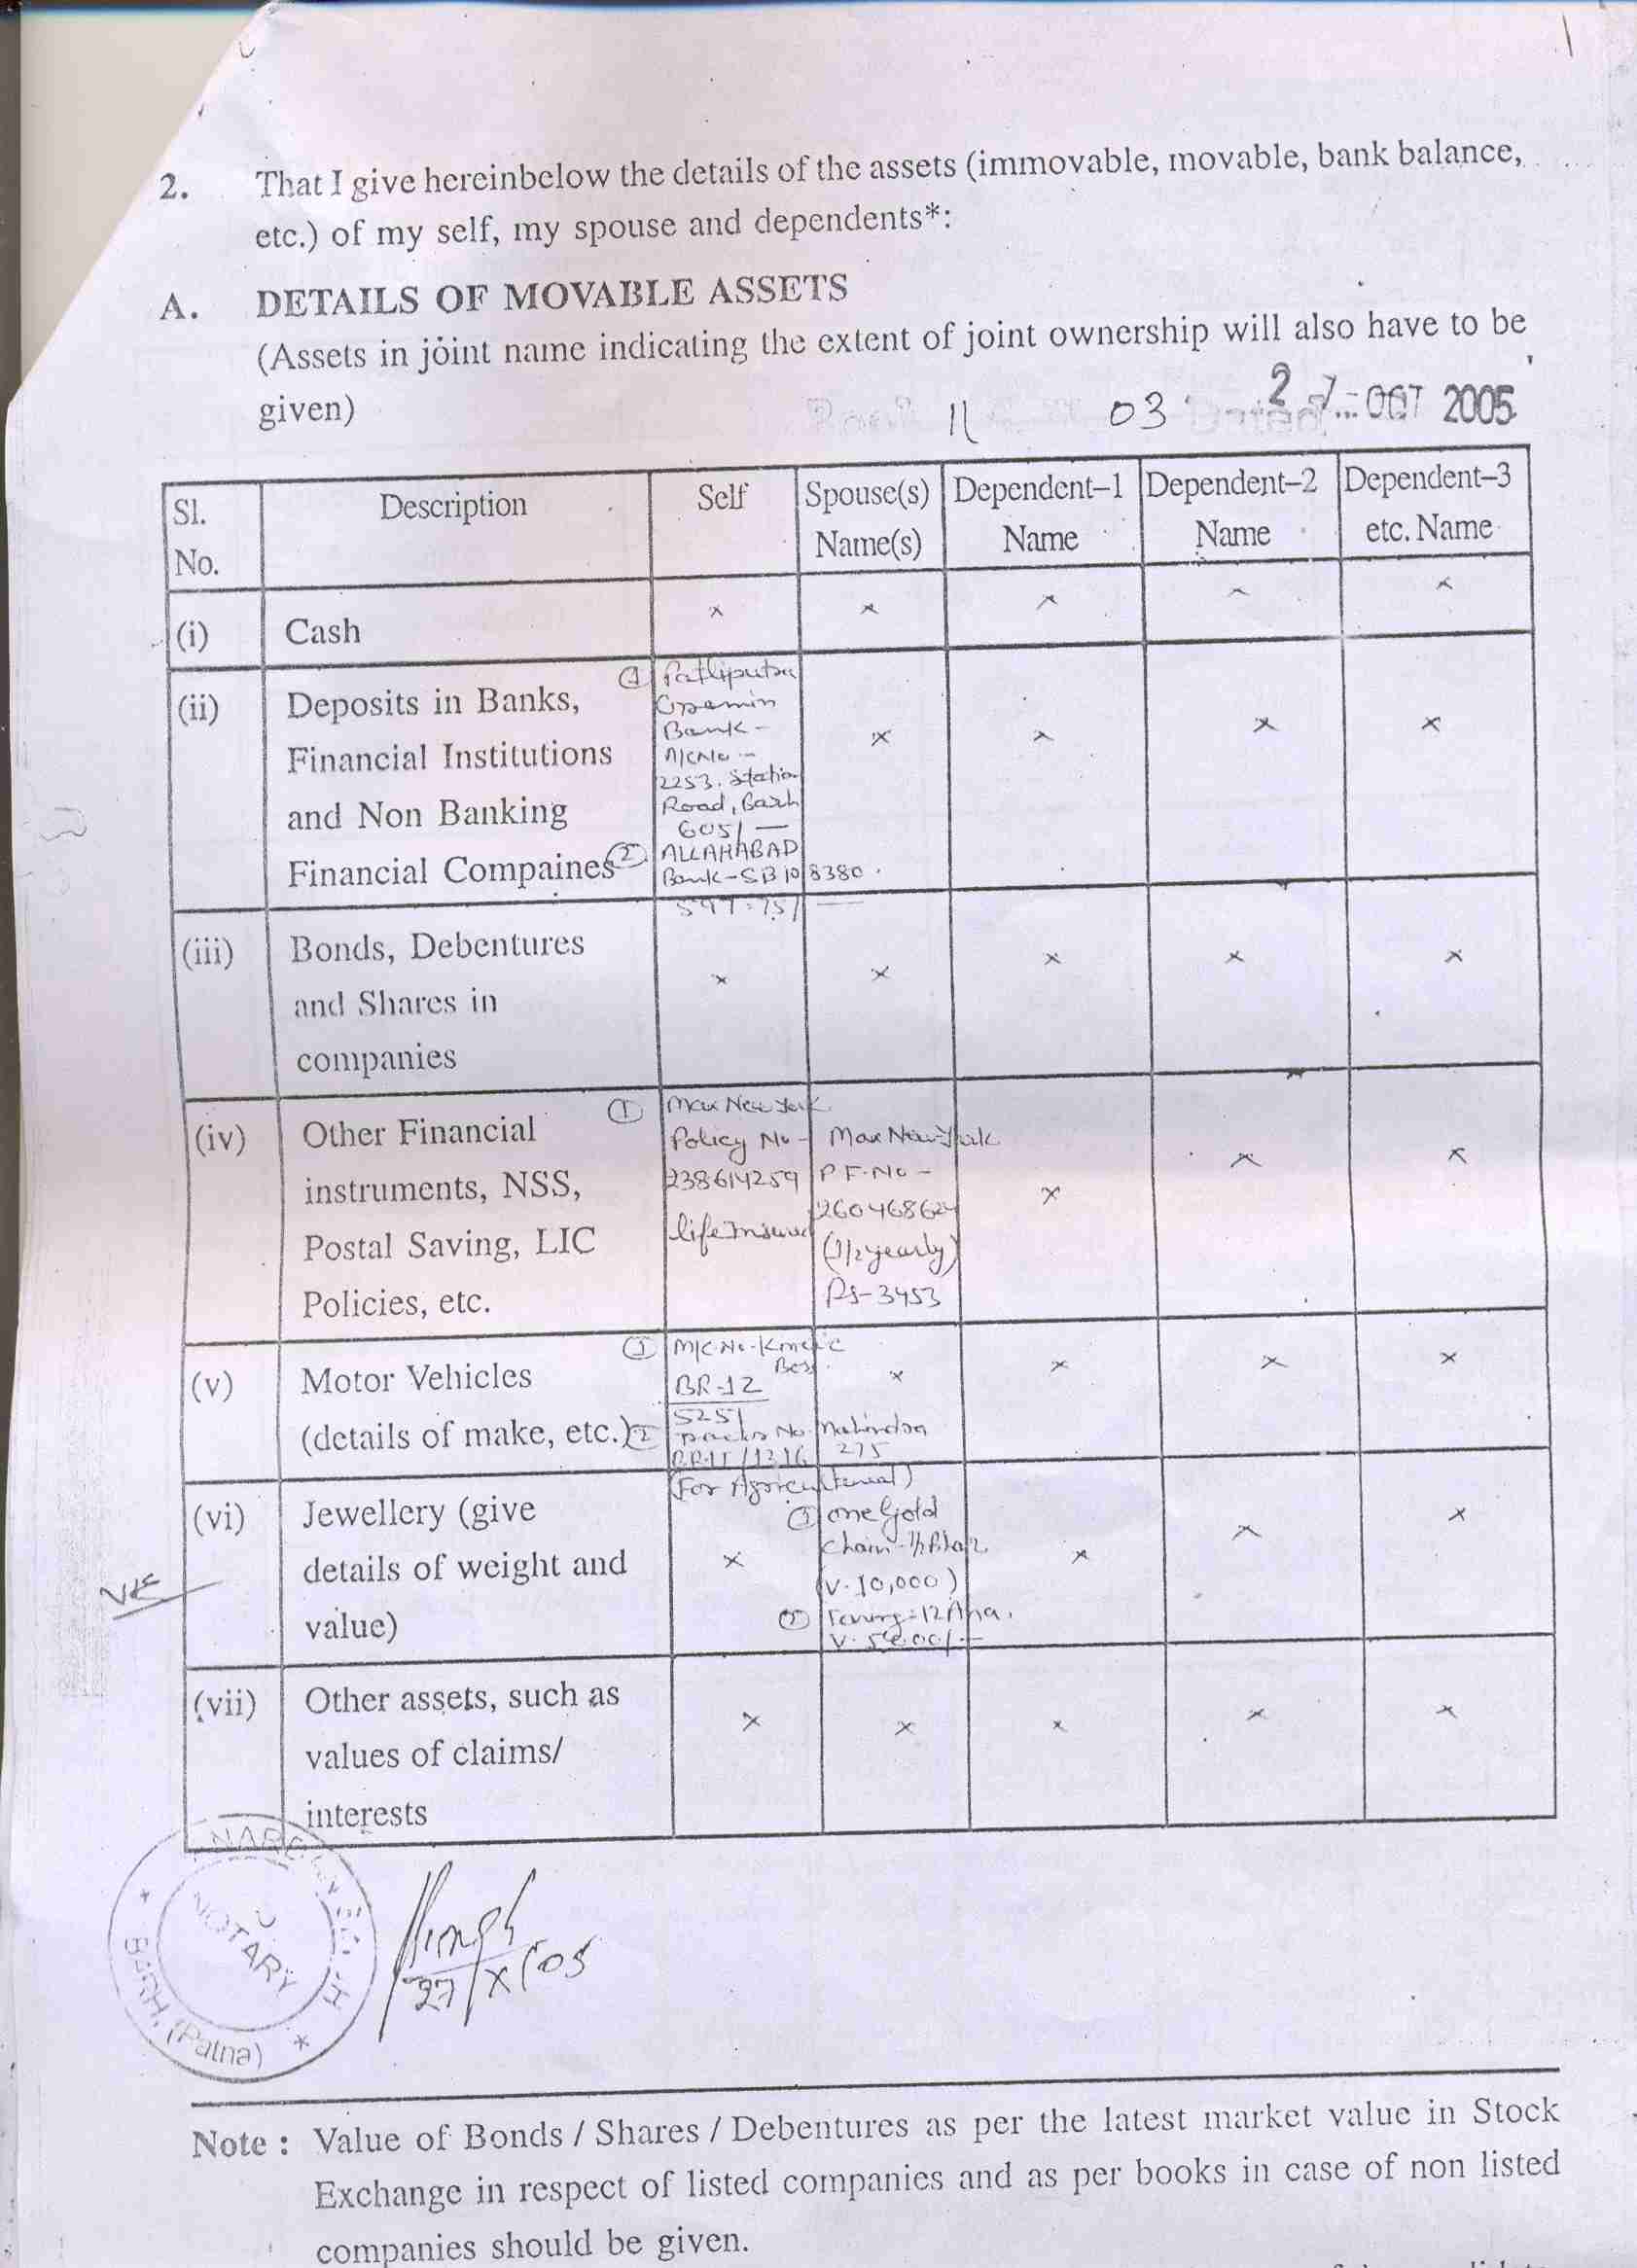 2. That I give hereinbelow the details of the assets (immovable, movable, bank balance,
etc.) of my self, my spouse and dependents*:
A. DETAILS OF MOVABLE ASSETS
(Assets in joint name indicating the extent of joint ownership will also have to be
given)
11 03 27 OCT 2005
Sl. No. Description Self Spouse(s) Name(s) Dependent–1 Name Dependent–2 Name Dependent–3 etc. Name
(i) Cash x x x x x
(ii) Deposits in Banks,
Financial Institutions
and Non Banking
Financial Compaines
① Patliputra
Gramin
Bank -
A/C No -
2253, Station
Road, Barh
605/—
② ALLAHABAD
Bank - SB 108380.
x x x x
(iii) Bonds, Debentures
and Shares in
companies
x x x x x
(iv) Other Financial
instruments, NSS,
Postal Saving, LIC
Policies, etc.
① Max New York
Policy No -
238614259
life Insured
Max New York
P F. No -
260468624
(1/2 yearly)
Rs - 3453
x x x
(v) Motor Vehicles
(details of make, etc.)
① M/C No -
BR-12
5251
② No Mahindra
275
(For Agricultural)
x x x x
(vi) Jewellery (give
details of weight and
value)
x
① one Gold
chain - 1/2
(V. 10,000)
② 12 Ana.
x x x
(vii) Other assets, such as
values of claims/
interests
x x x x x
NOTARY
BARH, (Patna)
Singh
27/X/05
Note : Value of Bonds / Shares / Debentures as per the latest market value in Stock
Exchange in respect of listed companies and as per books in case of non listed
companies should be given.